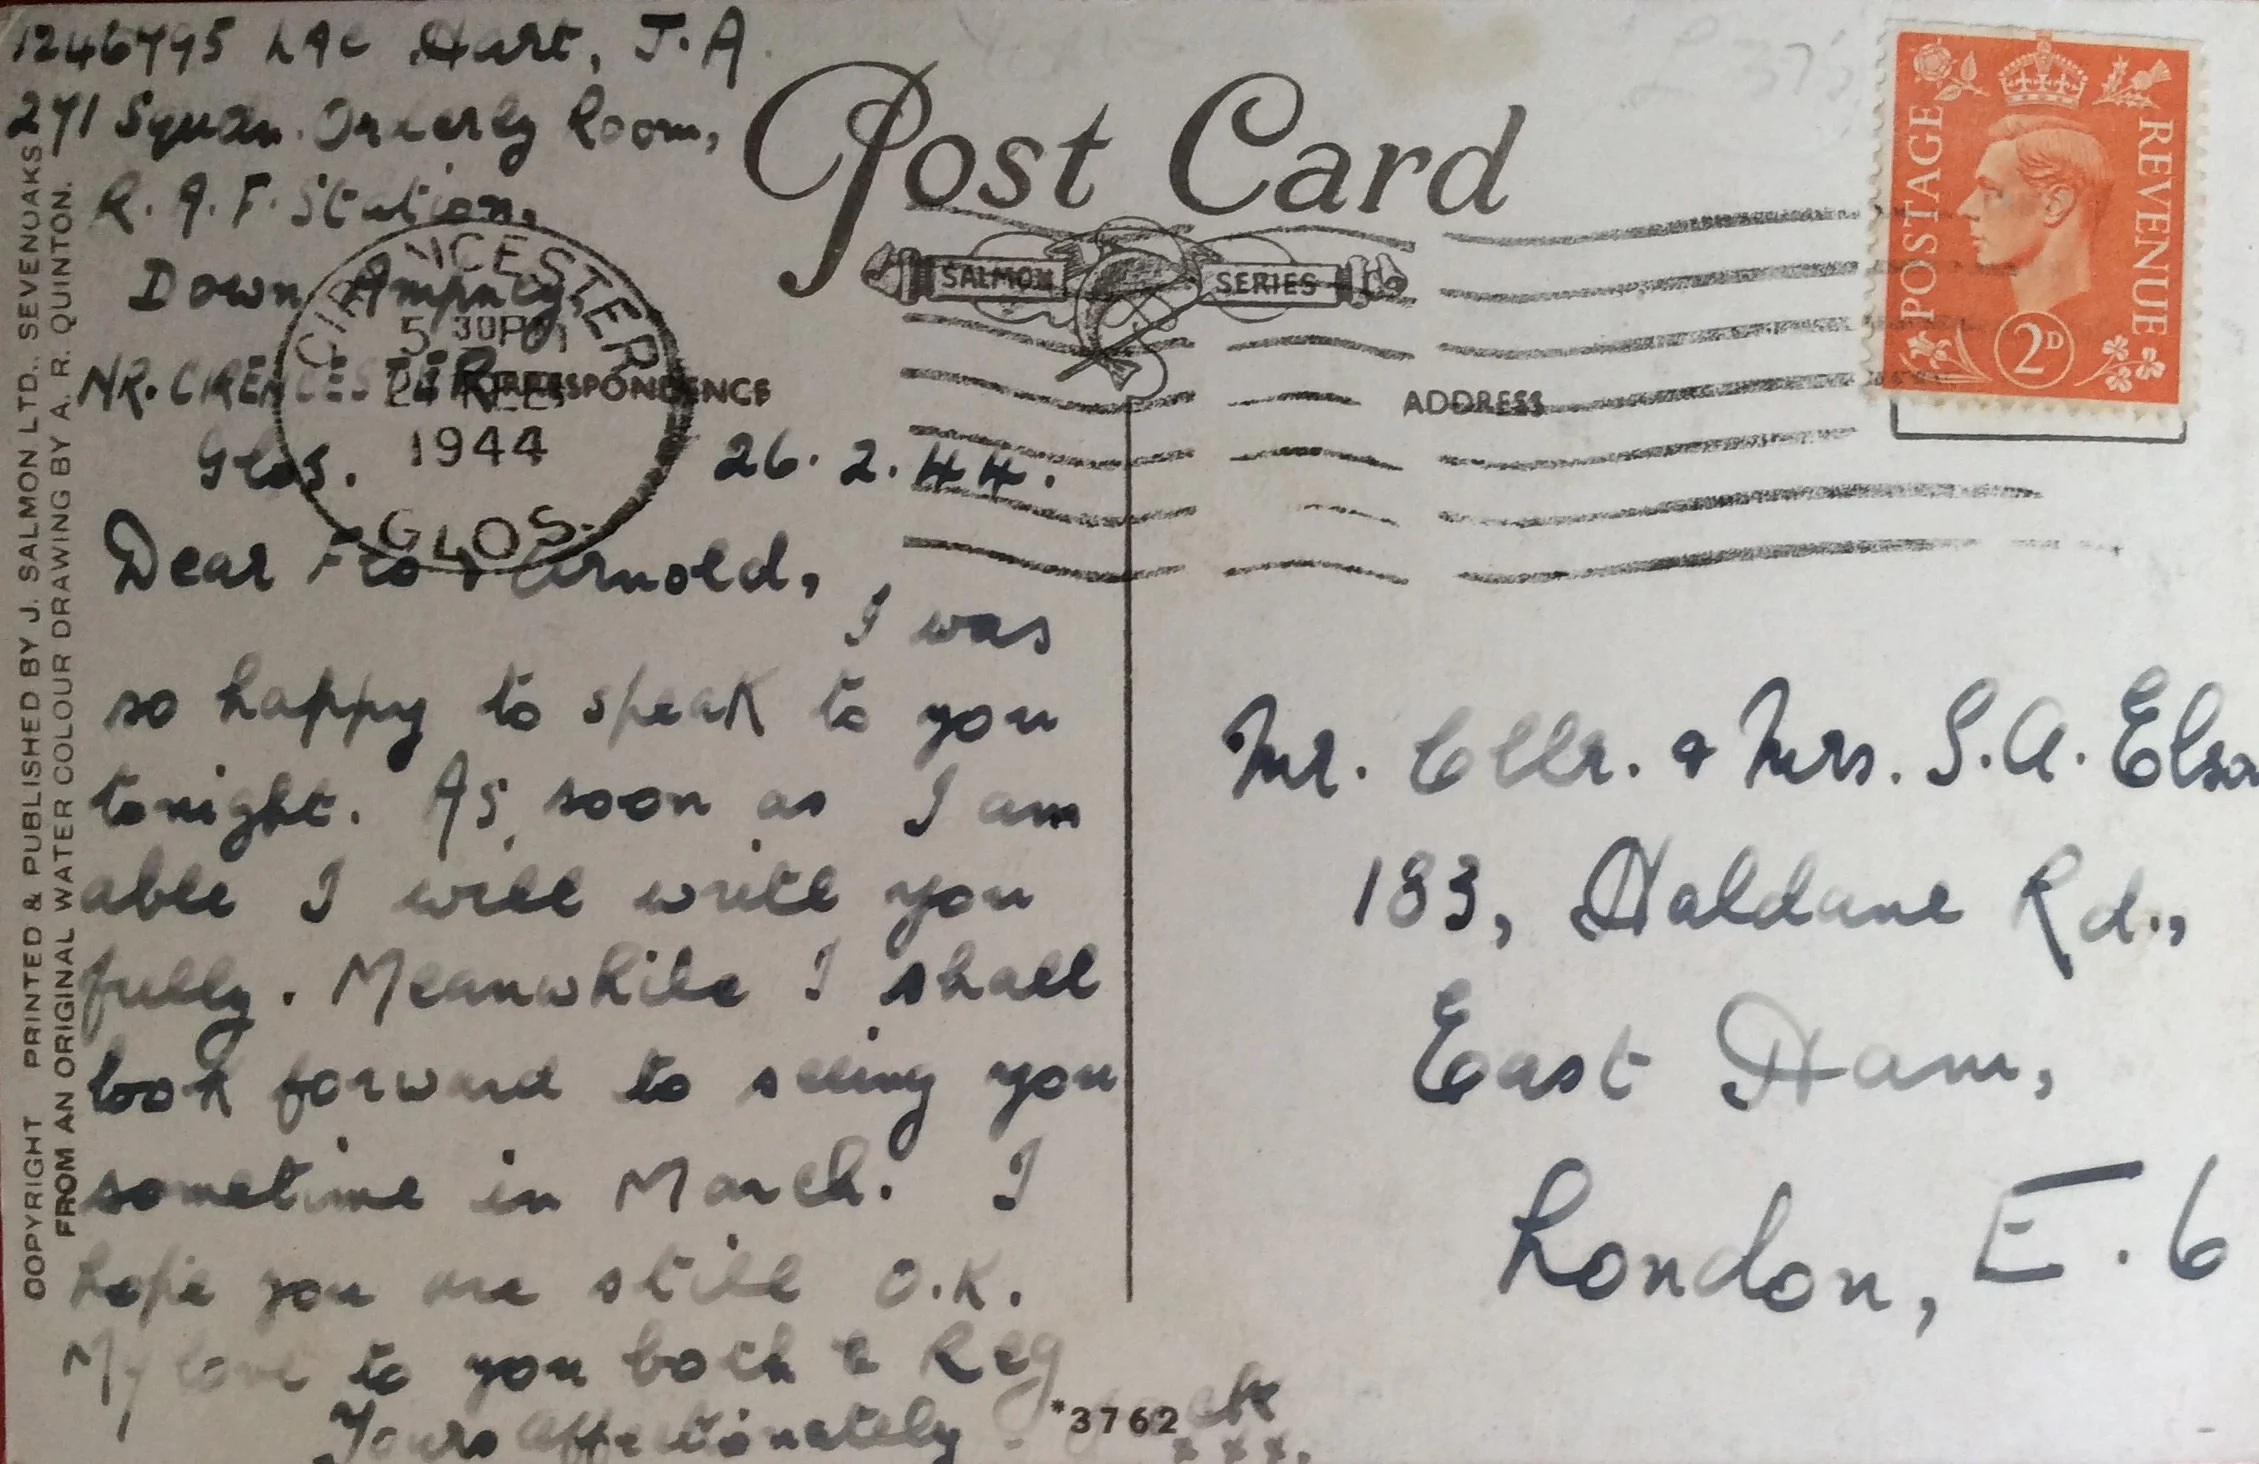 1246795 LAC Hart, J.A.
271 Squdn. Orderly Room,
R.A.F. Station,
Down Ampney,
NR. CIRENCESTER
Glos.
26.2.44.
Dear Flo & Arnold,
I was
so happy to speak to you
tonight. As soon as I am
able I will write you
fully. Meanwhile I shall
look forward to seeing you
sometime in March. I
hope you are still O.K.
My love to you both & Reg
Yours affectionately
Jack
x x x.
Post Card
SALMON SERIES
CORRESPONDENCE
ADDRESS
CIRENCESTER
5 30PM
FEB
1944
GLOS.
POSTAGE
REVENUE
2D
Mr. Cllr. & Mrs. S.A.
183, Haldane Rd.,
East Ham,
London, E.6
*3762
COPYRIGHT PRINTED & PUBLISHED BY J. SALMON LTD., SEVENOAKS
FROM AN ORIGINAL WATER COLOUR DRAWING BY A. R. QUINTON.